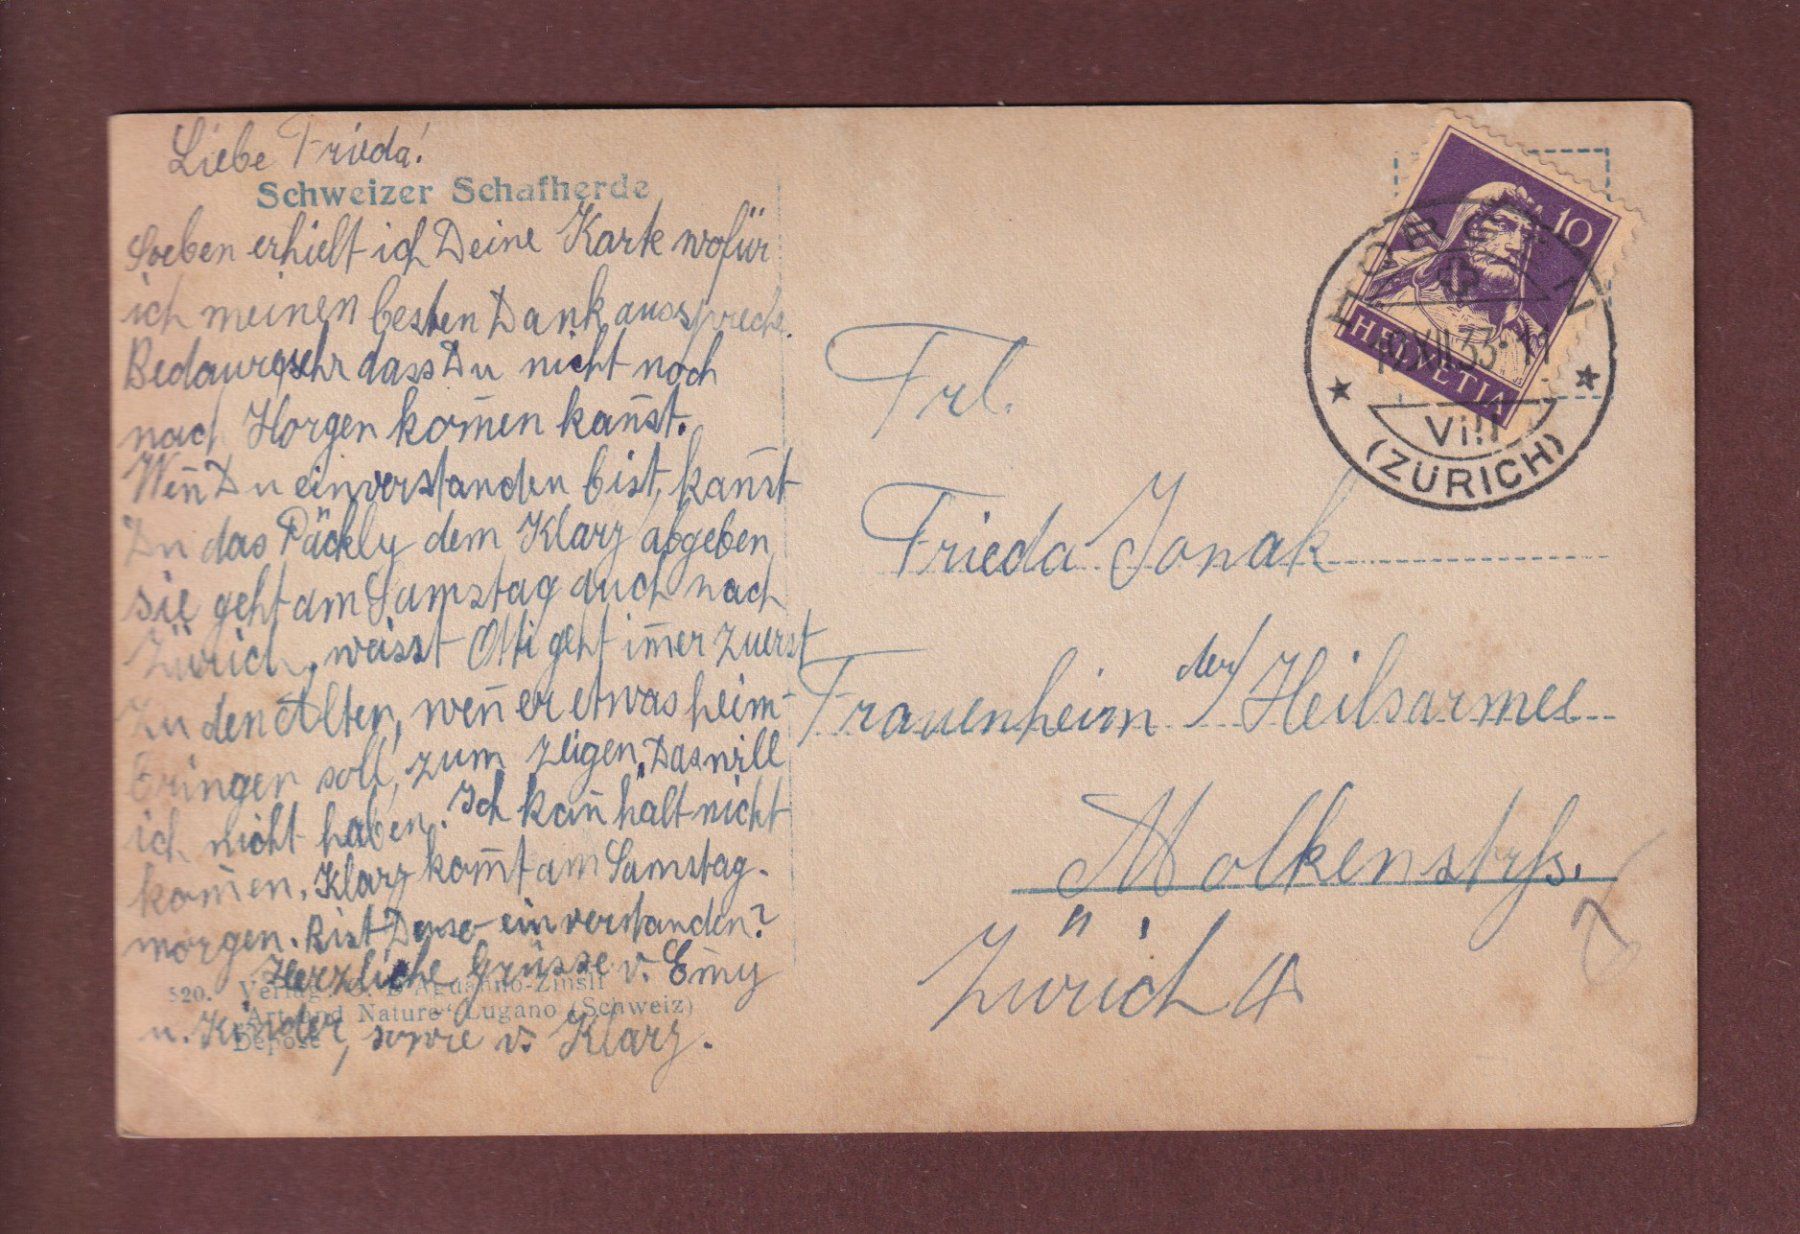 Liebe Frieda!
Schweizer Schafherde
Soeben erhielt ich Deine Karte wofür
ich meinen besten Dank ausspreche.
Bedaure sehr dass Du nicht noch
nach Horgen kom̄en kan̄st.
Wen̄ Du einverstanden bist, kan̄st
Du das Päckly dem Klarz abgeben
sie geht am Samstag auch nach
Zürich, weisst Otti geht im̄er zuerst
zu den Alten, wen̄ er etwas heim-
bringen soll, zum zeigen. Das will
ich nicht haben. Ich kan̄ halt nicht
kom̄en. Klarz kom̄t am Samstag-
morgen. Bist Du so einverstanden?
Herzliche Grüsse v. Em̄y
u. Kinder, sowie v. Klarz.
520. Verlag: G. D'Aguanno-Zinsli
"Art and Nature" Lugano (Schweiz)
Déposé
HORGEN
10
HELVETIA
XII.33
VIII
(ZÜRICH)
Frl.
Frieda Jonak
Frauenheim der Heilsarmee
Molkenstrss.
Zürich 4